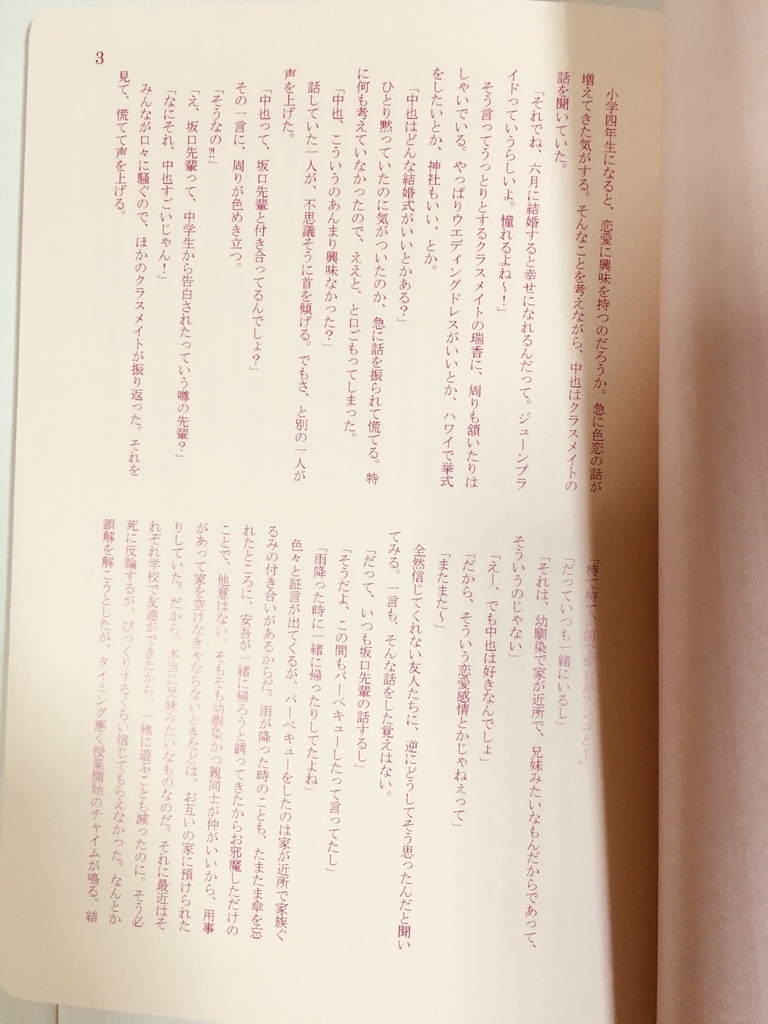 小学四年生になると、恋愛に興味を持つのだろうか。急に色恋の話が
増えてきた気がする。そんなことを考えながら、中也はクラスメイトの
話を聞いていた。
「それでね、六月に結婚すると幸せになれるんだって。ジューンブラ
イドっていうらしいよ。憧れるよね〜！」
そう言ってうっとりとするクラスメイトの瑞香に、周りも頷いたりは
しゃいでいる。やっぱりウエディングドレスがいいとか、ハワイで挙式
をしたいとか、神社もいい、とか。
「中也はどんな結婚式がいいとかある？」
ひとり黙っていたのに気がついたのか、急に話を振られて慌てる。特
に何も考えていなかったので、ええと、と口ごもってしまった。
「中也、こういうのあんまり興味なかった？」
話していた一人が、不思議そうに首を傾げる。でもさ、と別の一人が
声を上げた。
「中也って、坂口先輩と付き合ってるんでしょ？」
その一言に、周りが色めき立つ。
「そうなの⁈」
「え、坂口先輩って、中学生から告白されたっていう噂の先輩？」
「なにそれ、中也すごいじゃん！」
みんなが口々に騒ぐので、ほかのクラスメイトが振り返った。それを
見て、慌てて声を上げる。
「待て待て、
「だっていつも一緒にいるし」
「それは、幼馴染で家が近所で、兄妹みたいなもんだからであって、
そういうのじゃない」
「えー、でも中也は好きなんでしょ」
「だから、そういう恋愛感情とかじゃねぇって」
「またまた〜」
全然信じてくれない友人たちに、逆にどうしてそう思ったんだと聞い
てみる。一言も、そんな話をした覚えはない。
「だって、いつも坂口先輩の話するし」
「そうだよ、この間もバーベキューしたって言ってたし」
「雨降った時に一緒に帰ったりしてたよね」
色々と証言が出てくるが、バーベキューをしたのは家が近所で家族ぐ
るみの付き合いがあるからだ。雨が降った時のことも、たまたま傘を忘
れたところに、安吾が一緒に帰ろうと誘ってきたからお邪魔しただけの
ことで、他意はない。そもそも幼馴染かつ親同士が仲がいいから、用事
があって家を空けなきゃならないときなどは、お互いの家に預けられた
りしていた。だから、本当に兄妹みたいなものなのだ。それに最近はそ
れぞれ学校で友達ができたから、一緒に遊ぶことも減ったのに。そう必
死に反論するが、びっくりするくらい信じてもらえなかった。なんとか
誤解を解こうとしたが、タイミング悪く授業開始のチャイムが鳴る。結
3